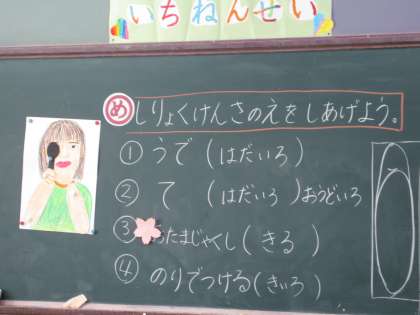 いちねんせい
め しりょくけんさのえをしあげよう。
① うで (はだいろ)
② て (はだいろ) おうどいろ
③ たまじゃくし (きる)
④ のりでつける (きいろ)